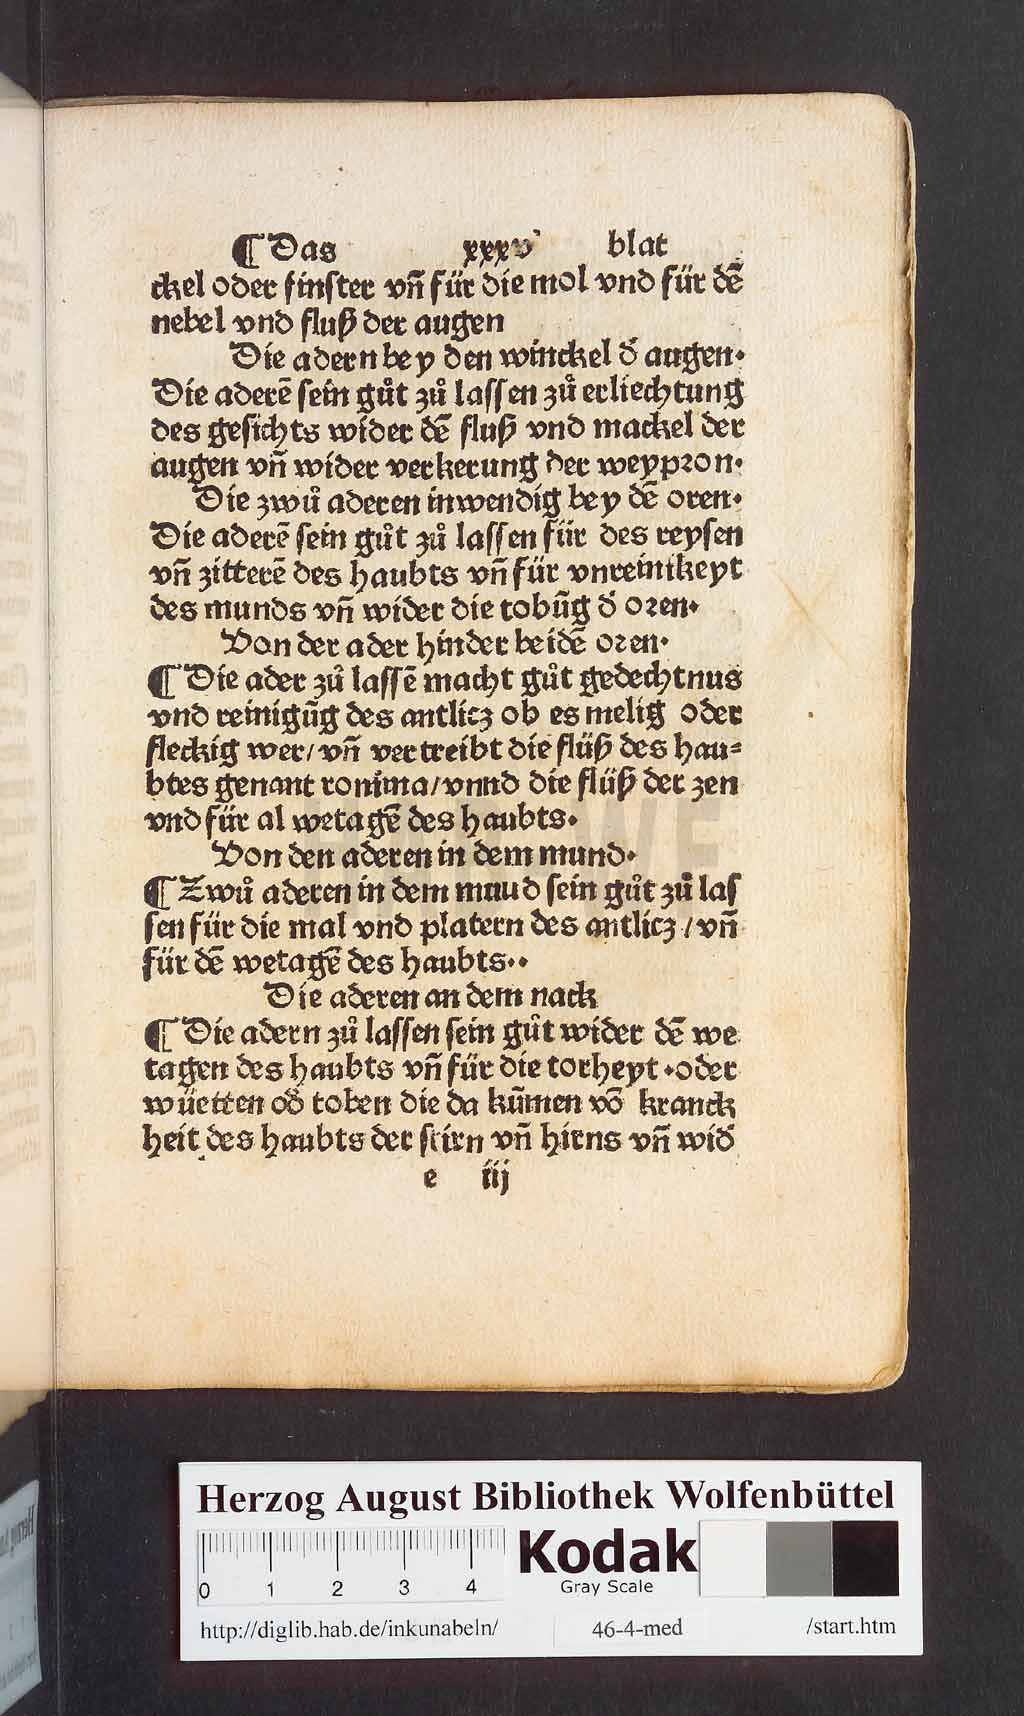 ¶ Das xxxv blat
ckel oder finster vn̄ für die mol vnd für dē
nebel vnd fluß der augen
Die adern bey den winckel d̓ augen.
Die aderē sein gůt zů lassen zů erliechtung
des gesichts wider dē fluß vnd mackel der
augen vn̄ wider verkerung der weypron.
Die zwů aderen inwendig bey dē oren.
Die aderē sein gůt zů lassen für des reysen
vn̄ zitterē des haubts vn̄ für vnreinikeyt
des munds vn̄ wider die tobūg d̓ oren.
Von der ader hinder beidē oren.
¶ Die ader zů lassē macht gůt gedechtnus
vnd reinigūg des antlicz ob es melig oder
fleckig wer/ vn̄ vertreibt die flüß des hau=
btes genant ronima/ vnnd die flüß der zen
vnd für al wetagē des haubts.
Von den aderen in dem mund.
¶ Zwů aderen in dem muud sein gůt zů las
sen für die mal vnd platern des antlicz / vn̄
für dē wetagē des haubts..
Die aderen an dem nack
¶ Die adern zů lassen sein gůt wider dē we
tagen des haubts vn̄ für die torheyt .oder
wüetten od̓ toben die da kūmen vō kranck
heit des haubts der stirn vn̄ hirns vn̄ wid̓
e iij
HAB WF
Herzog August Bibliothek Wolfenbüttel
0 1 2 3 4
Kodak
Gray Scale
http://diglib.hab.de/inkunabeln/ 46-4-med /start.htm